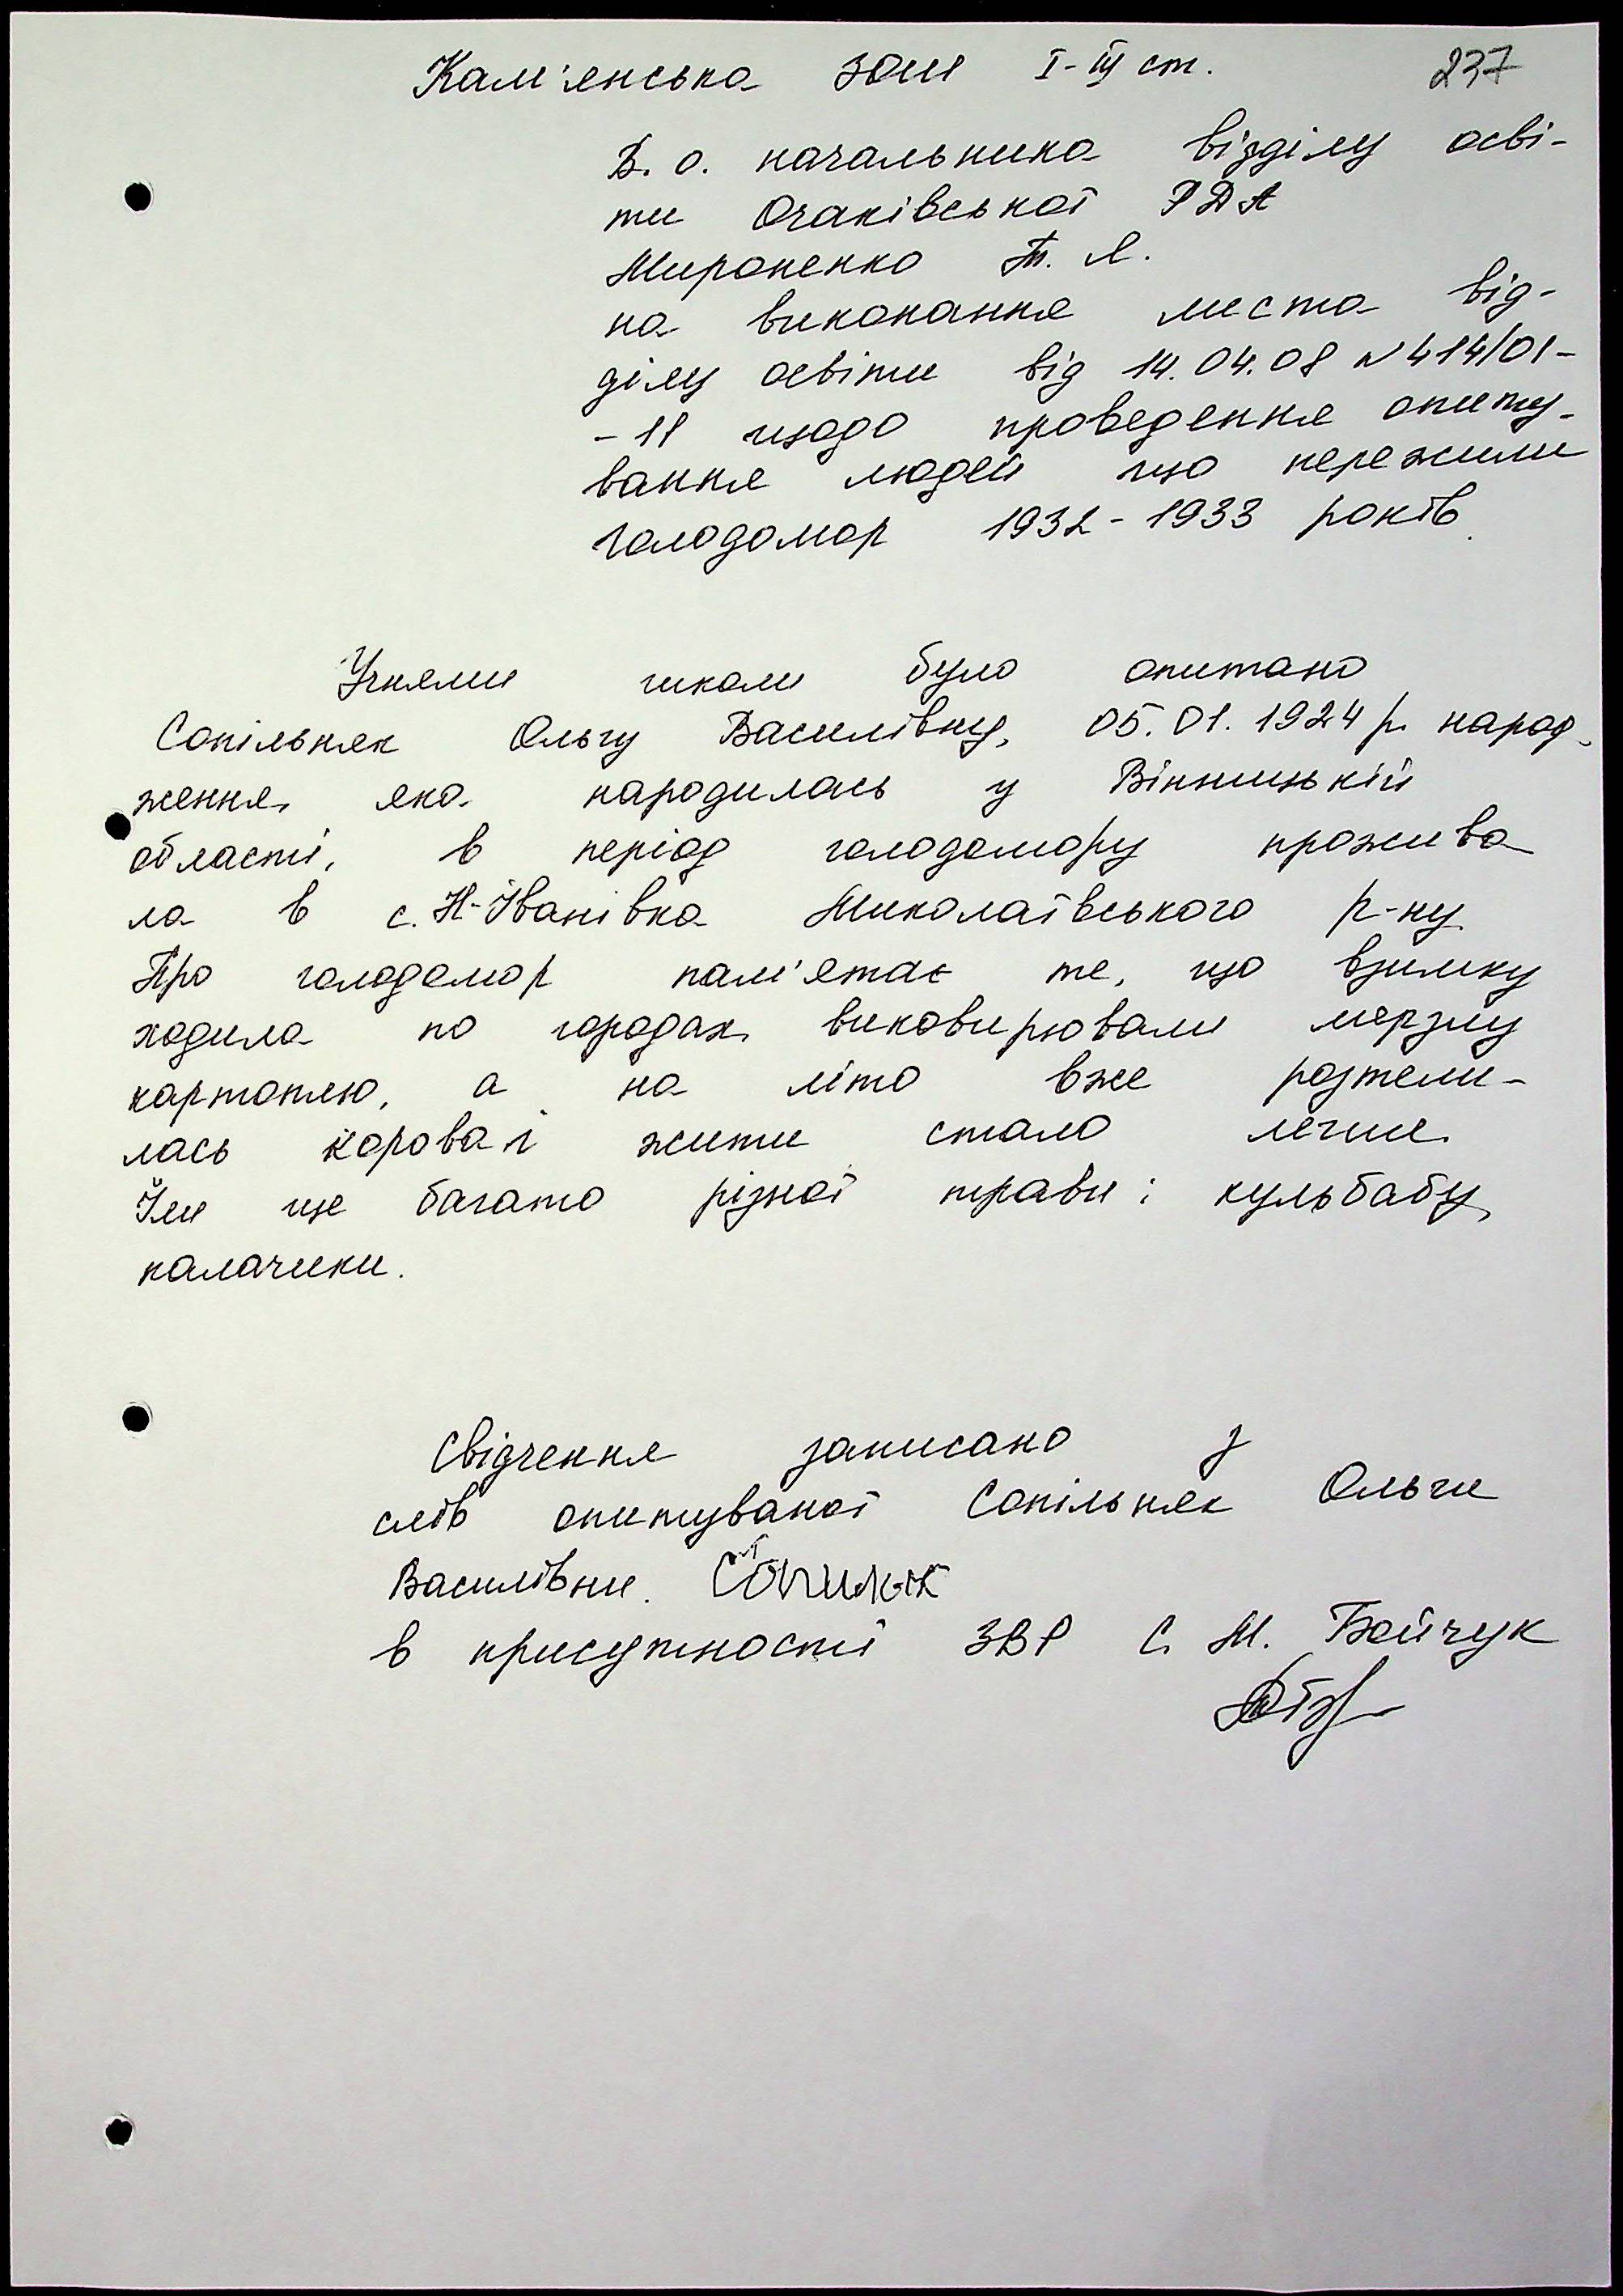 Кам'янська ЗОШ І-ІІІ ст. 237
В. о. начальника відділу осві-
ти Очаківської РДА
Мироненко Т. Я.
на виконання листа від-
ділу освіти від 14.04.08 N 414/01-
-11 щодо проведення опиту-
вання людей що пережили
голодомор 1932-1933 років.
Учнями школи було опитано
Сопільняк Ольгу Василівну, 05.01.1924 р. народ-
ження, яка народилась у Вінницькій
області, в період голодомору прожива
ла в с. Н-Іванівка Миколаївського р-ну.
Про голодомор пам'ятає те, що взимку
ходила по городах, виковирювали мерзлу
картоплю, а на літо вже розтели-
лась корова і жити стало легше.
Їли ще багато різної трави: кульбабу,
калачики.
Свідчення записано з
слів опитуваної Сопільняк Ольги
Василівни.
в присутності ЗВР С. М. Бойчук